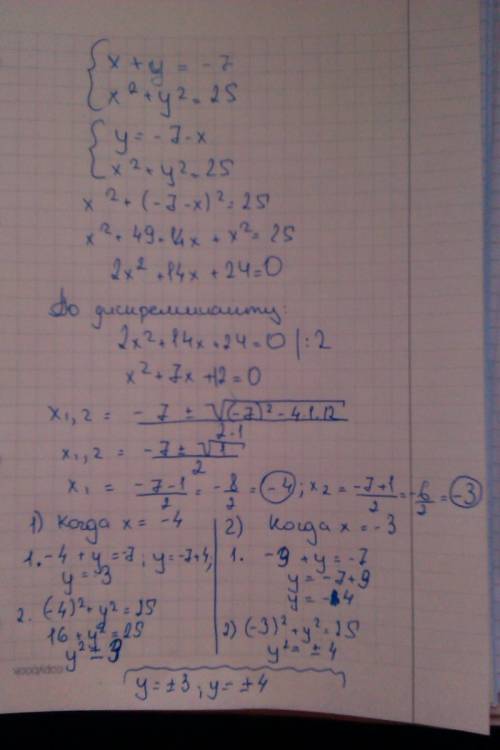 x + y = -7
x² + y² = 25
y = -7-x
x² + y² = 25
x² + (-7-x)² = 25
x² + 49 + 14x + x² = 25
2x² + 14x + 24 = 0
По дискреминанту:
2x² + 14x + 24 = 0 |:2
x² + 7x + 12 = 0
x₁,₂ = (-7 ± √((-7)² - 4·1·12))/(2·1)
x₁,₂ = (-7 ± √1)/2
x₁ = (-7-1)/2 = -8/2 = -4 ; x₂ = (-7+1)/2 = -6/2 = -3
1) Когда x = -4
1. -4 + y = -7 ; y = -7+4,
y = -3
2. (-4)² + y² = 25
16 + y² = 25
y² = ± 9
2) Когда x = -3
1. -9 + y = -7
y = -7+9
y = -4
2) (-3)² + y² = 25
y² = ± 4
y = ±3 ; y = ±4